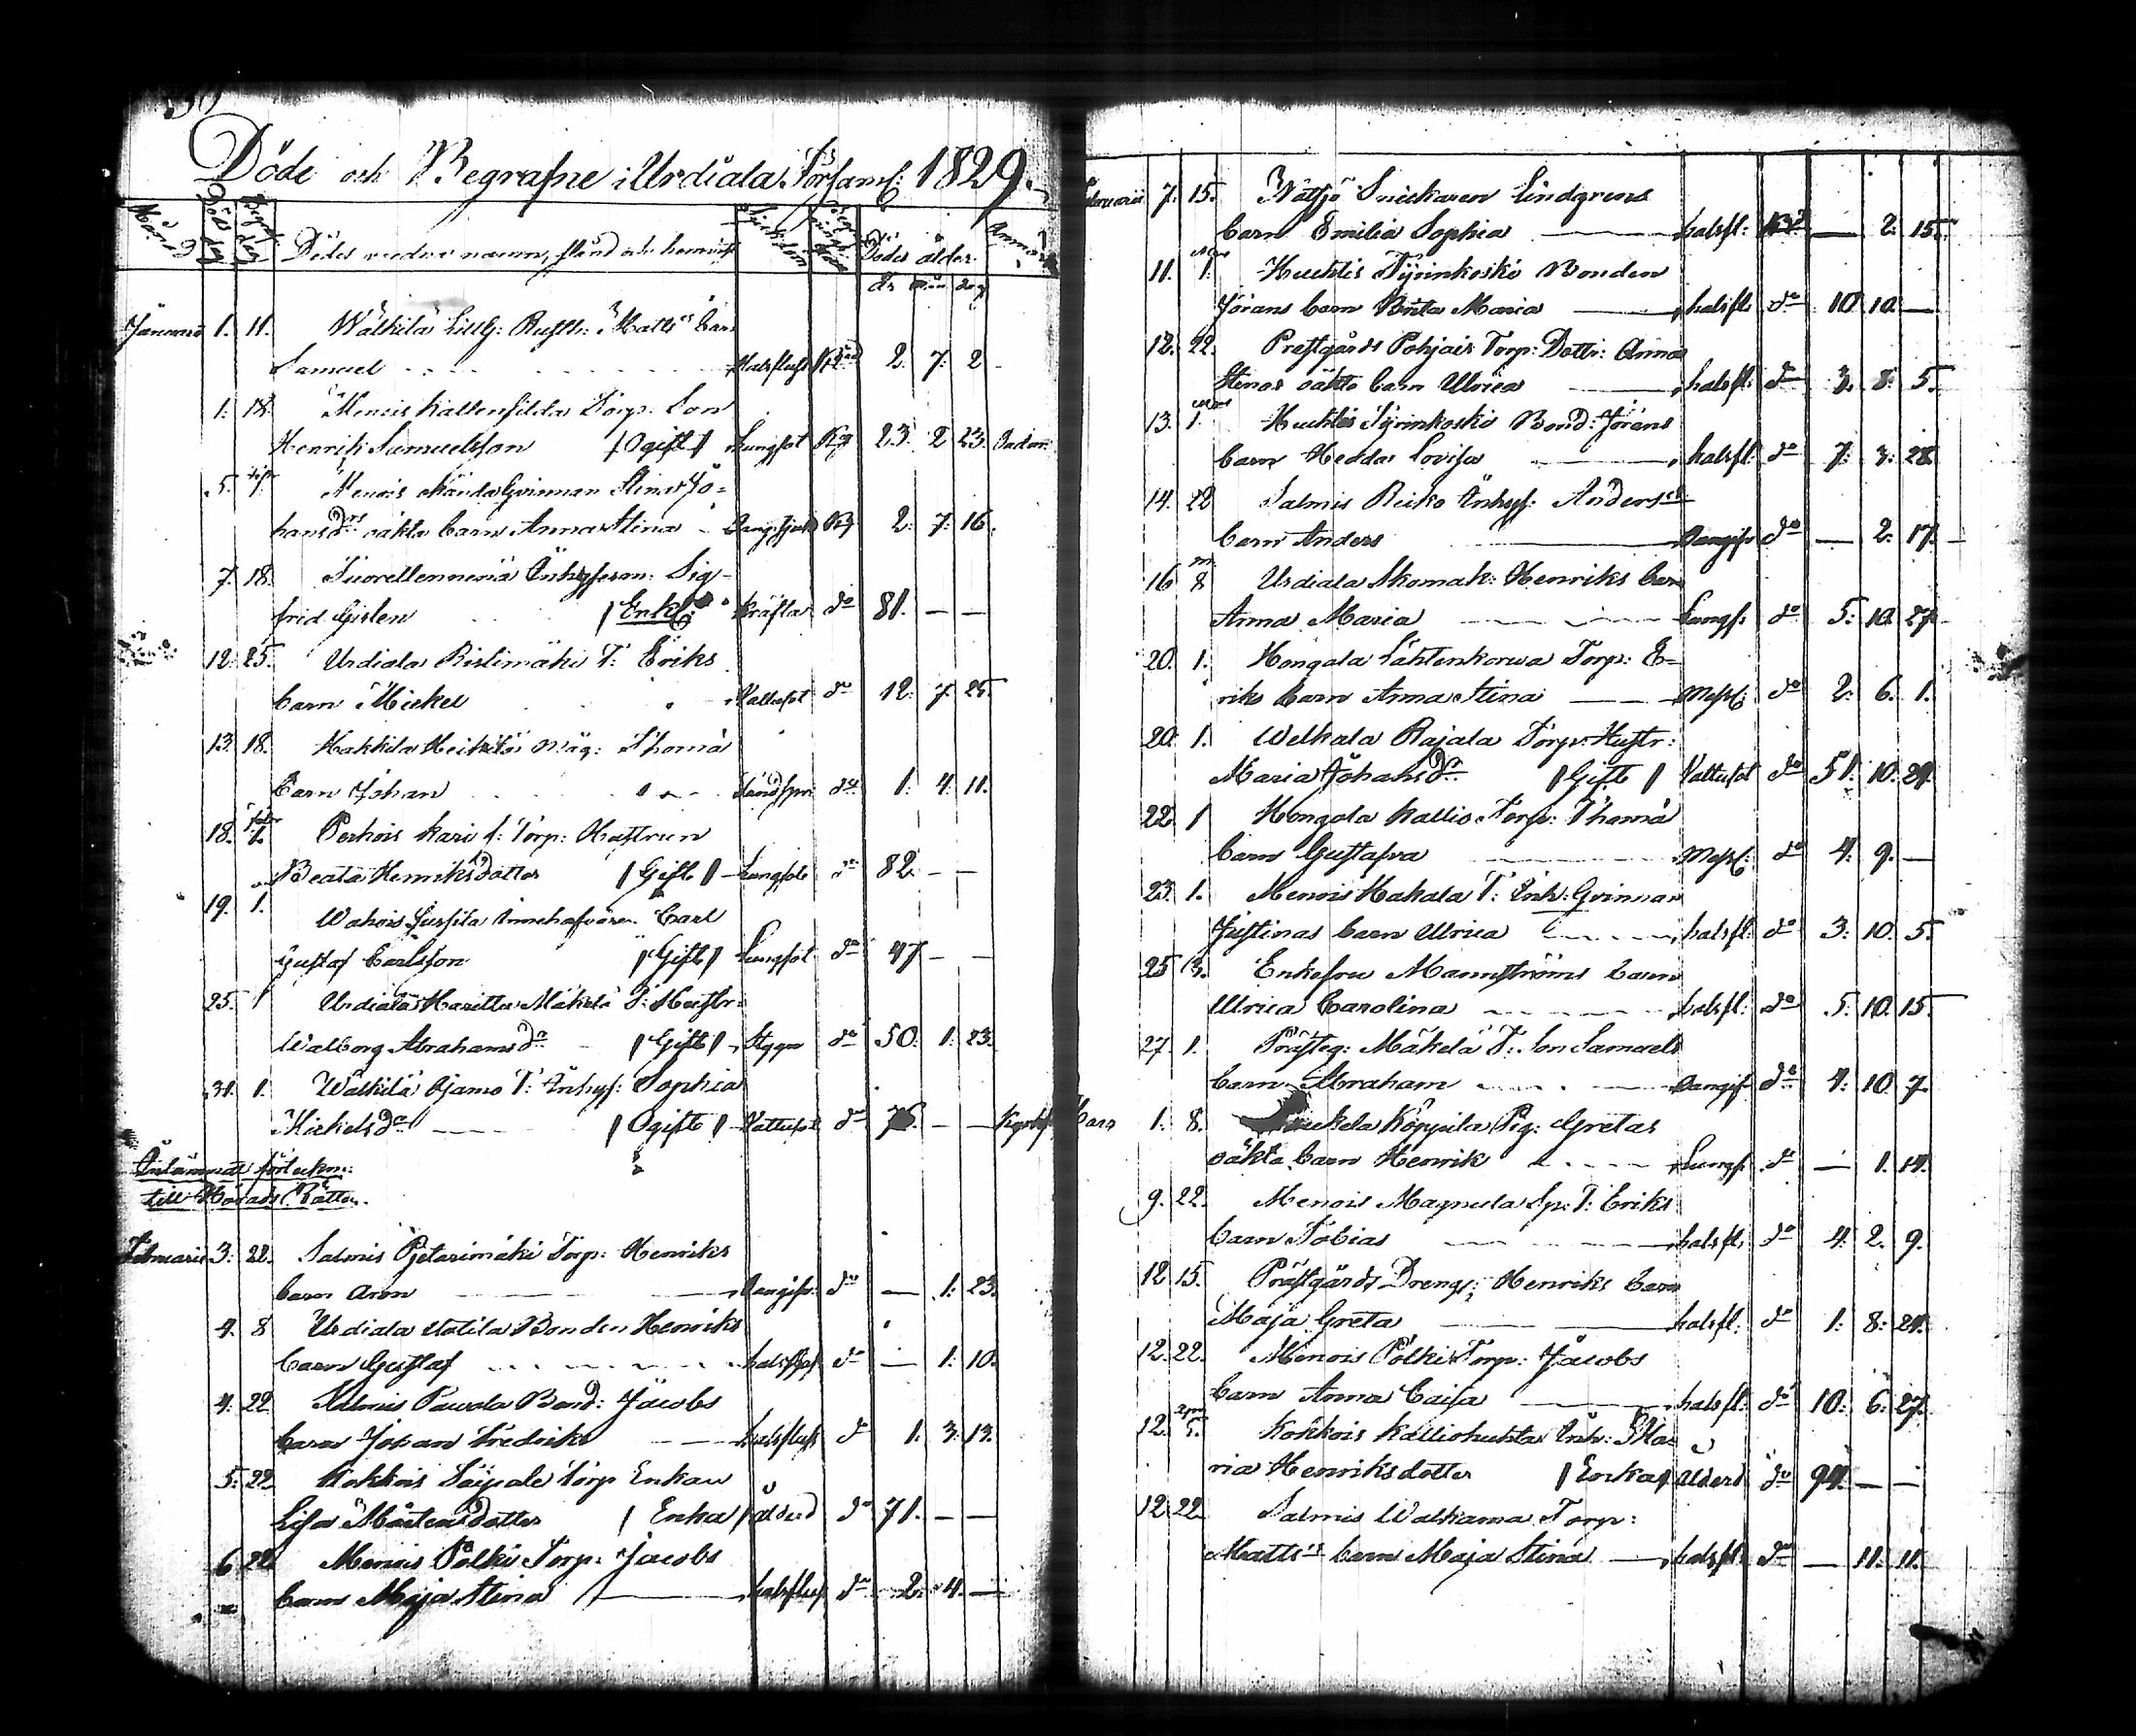 Döde och Begrafne i Urdiala Församl: 1829.
Månad Döds dag Begr: dag Dödes naamn, stånd och hemvist Sjukdom Dödes ålder Anm:
År mån dag
Januari 1. 11. Wälkilä Matts barn
Samuel Halsfluss 2. 7. 2
1. 18. Menois Torp: Son
Henrik Samuelsson Ogift Lungsot Kg 23. 2 23.
5. 1. Menois Qvinnan Stina Jo=
hansdrs oäkta barn Anna Stina Kg 2. 7. 16.
7. 18. Inhyses m: Sig-
frid Enkl: Kräfta do 81. — —
12. 25. Urdiala Ristimäki T: Eriks
barn Mickel Vattusot do 12. 7. 25.
13. 18. Hakkila Heikkilä Måg: Thoma
barn Johan do 1. 4. 11.
18. 1. Kari T: Torp: Hustrun
Beata Henriksdotter Gift Lungsot do 82. — —
19. 1. Wahois innehafvaren Carl
Gustaf Carlsson Gift Lungsot do 47 — —
25. 1 Urdiala Mäkelä T: Hustr:
Walborg Abrahamsdr Gift Stygn do 50. 1. 23.
31. 1. Wälkilä Ojamo T: Inhys: Sophia
Mickelsdr Ogift Vattusot do — —
till Härads Rätten.
Februari 3. 22. Salmis Pietarimäki Torp: Henriks
barn Aron do — 1. 23.
4. 8 Urdiala Uotila Bonden Henriks
barn Gustaf halsfluss do — 1. 10.
4. 22 Salmis Pawola Bond: Jacobs
barn Johan Fredrik halsfluss do 1. 3. 13.
5. 22 Kokkois Torp Enkan
Lisa Mårtensdotter Enka Ålderd do 71. — —
6 22 Menois Pälki Torp: Jacobs
barn Maja Stina halsfluss do 2. 4. —
Februarii 7. 15. Snickaren Lindgrens
barn Emilia Sophia halsfl: — 2. 15.
11. Mars 1. Huhtis Tyrinkoski Bonden
Jörans barn Brita Maria halsfl: do 10 10. —
12. 22. Prestgårds Pohjais Torp: Dottr: Anna
Stinas oäkta barn Ulrica halsfl: do 3. 8. 5.
13. Mars 1. Huhtis Tyrinkoski Bond: Jörans
barn Hedda Lovisa halsfl: do 7. 3. 28.
14. 22 Salmis Inhys: Anders
barn Anders do — 2. 17.
16 m 8 Urdiala Skomak: Henriks barn
Anna Maria Lungs: do 5. 10. 27.
20. 1. Hongola Lähtenkorwa Torp: E-
riks barn Anna Stina Messl: do 2. 6. 1.
20. 1. Welhala Rajala Torp: Hustr:
Maria Johansdr Gift Vattusot do 51. 10. 29.
22. 1 Hongola Kallio Torp: Thoma
barn Gustafva Messl: do 4. 9. —
23. 1. Menois Hakala T: Inh: Qvinnan
Justinas barn Ulrica halsfl: do 3. 10. 5.
25 Enkefru Mannströms barn
Ulrica Carolina halsfl: do 5. 10. 15
27. 1. Prästeg: Mäkelä T: Son Samuels
barn Abraham do 4. 10. 7.
Mars 1. 8. Köppilä Pig: Gretas
oäkta barn Henrik Lungs: do — 1. 14.
9. 22. Menois Magnula Sp: T: Eriks
barn Tobias halsfl: do 4. 2. 9.
12 15. Prästgårds Drengs: Henriks barn
Maja Greta halsfl: do 1. 8. 24.
12. 22. Menois Pälki Torp: Jacobs
barn Anna Caisa halsfl: do 10. 6. 27.
12. 5. Kokkois Kalliohuhta Inh: Ma=
ria Henriksdotter Enka Ålderd do 94. — —
12. 22. Salmis Walkama Torp:
Matts barn Maja Stina halsfl: do — 11. 11.